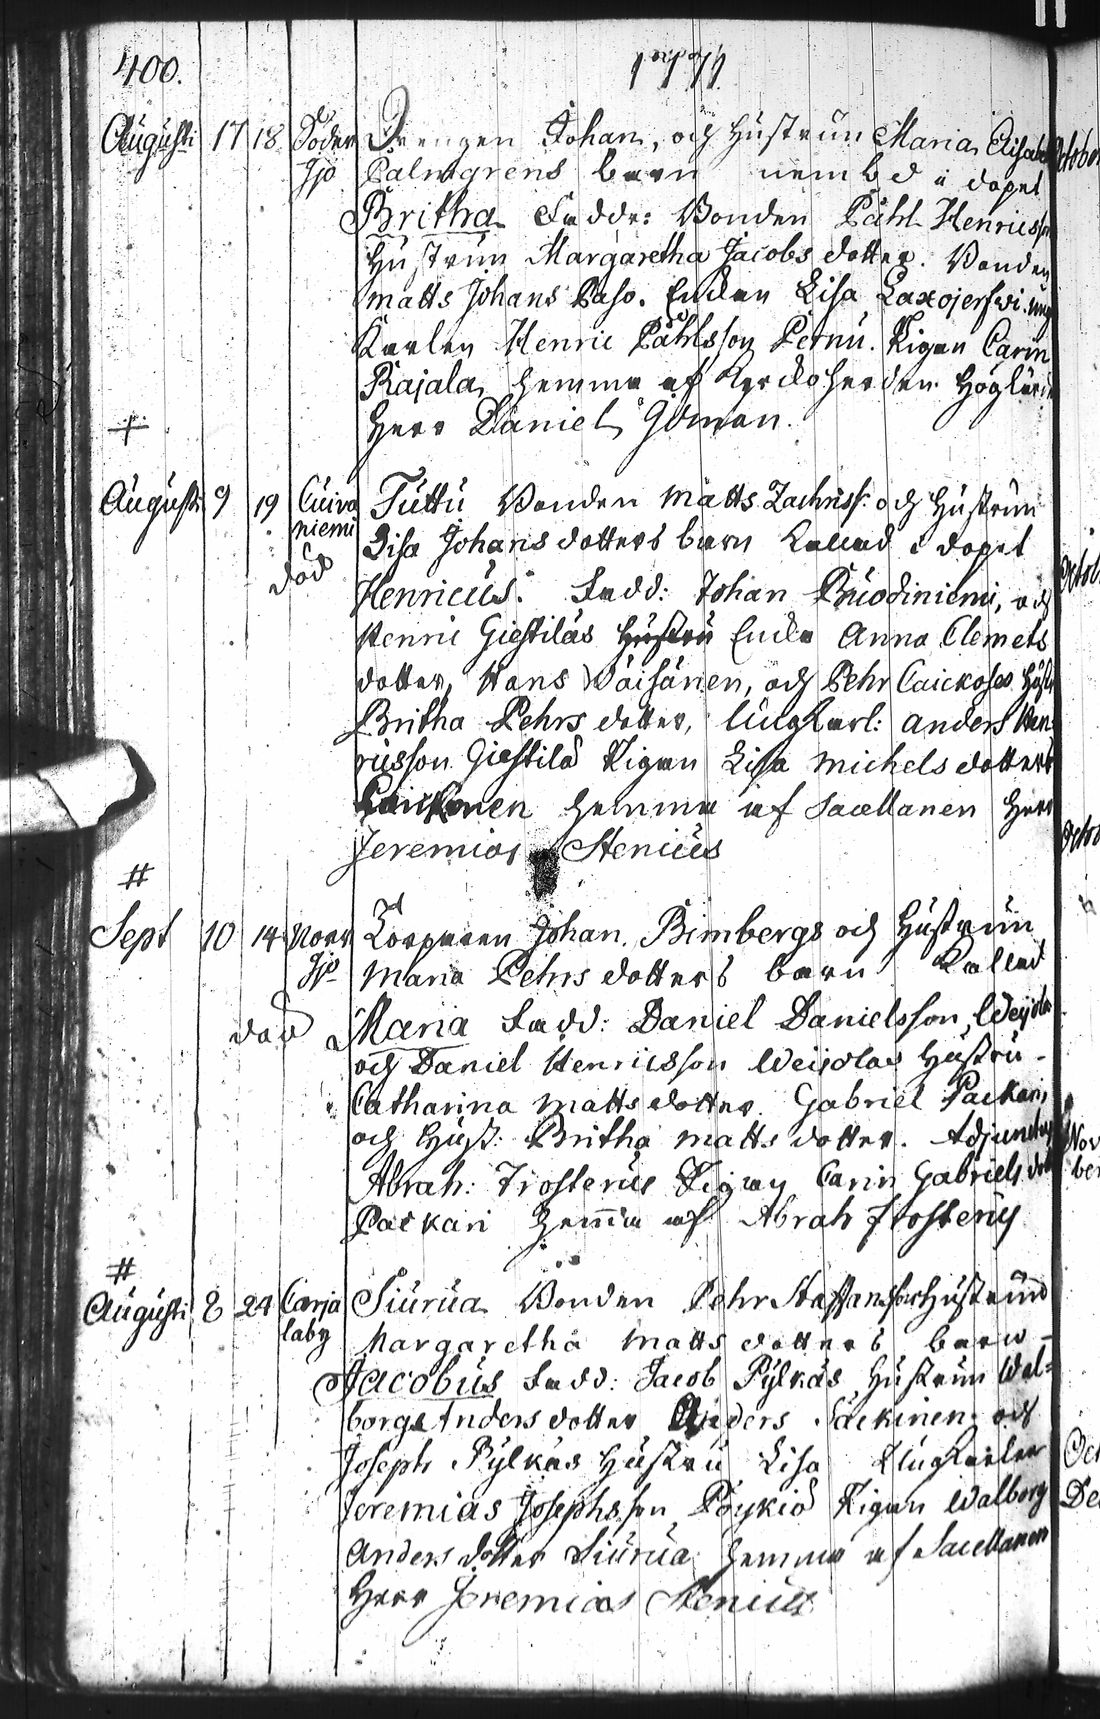 400. 1771
Augusti 17 18 Söder Drengen Johan, och Hustrun Maria Elisabe
Ijo Palmgrens barn nembd i dopet
Britha Fadd: Bonden Påhl Henricsson
Hustrun Margaretha Jacobs dotter. Bonden
Matts Johans Paso. Enckan Lisa Laxojerfwi. ung
Karlen Henric Påhlsson Pernu. Pigan Carin
Rajala, hemma af Kyrckoherden Höglärde
Herr Daniel
Augusti 9 19 Cuiva Tuttu Bonden Matts Zachriss: och Hustrun
niemi Lisa Johans dotters barn Kallad i dopet
död Henricus. Fadd: Johan Buodiniemi, och
Henric Giestilas Hustru Enda Anna Clemets
dotter, Hans Väisänen, och Pehr Caickoses Hust
Britha Pehrs dotter, Ungkarl: Anders Hen
ricsson Giestilä Pigan Lisa Michels dotter
hemma af Sacellanen Herr
Jeremias Stenius
Sept 10 14 Norr Torparen Johan Bimbergs och Hustrun
Ijo Maria Pehrs dotters barn Kallad
död Maria Fadd: Daniel Danielsson, Weijola
och Daniel Henricsson Weijolas Hustru
Catharina Matts dotter. Gabriel Packari
och Hust: Britha Matts dotter. Adjunctus
Abrah: Frosterus Pigan Carin Gabriels dott
Packari hemma af Abrah Frosterus
Augusti 8 24 Carja Siurua Bonden Pehr Staffansson Hustruns
laby Margaretha Matts dotters barn
Jacobus Fadd: Jacob Pylkäs Hustrun Wal=
borg Anders dotter Anders Säckinen och
Joseph Pylkäs Hustru Lisa Ungkarlen
Jeremias Josephsson Pöykiö Pigan Walborg
Anders dotter Siurua hemma af Sacellanen
Herr Jeremias Stenius